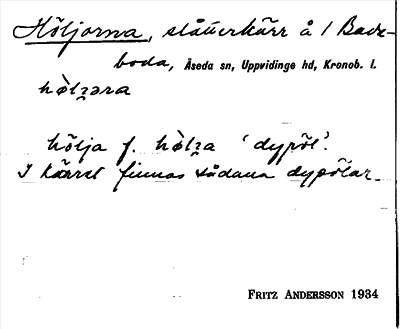 Höljorna, slåtterkärr å 1 Back-
boda, Åseda sn, Uppvidinge hd, Kronob. l.
hòlʒəra
hölja f. hòlʒa 'dypöl'.
I kärret finnas sådana dypölar.
FRITZ ANDERSSON 1934